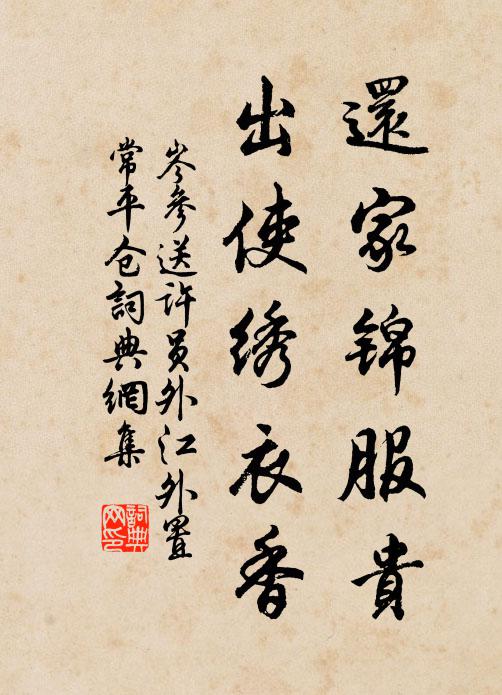 還家锦服貴
出使绣衣香
岑參送許员外江外置
常平仓詞典網集
詞典网印